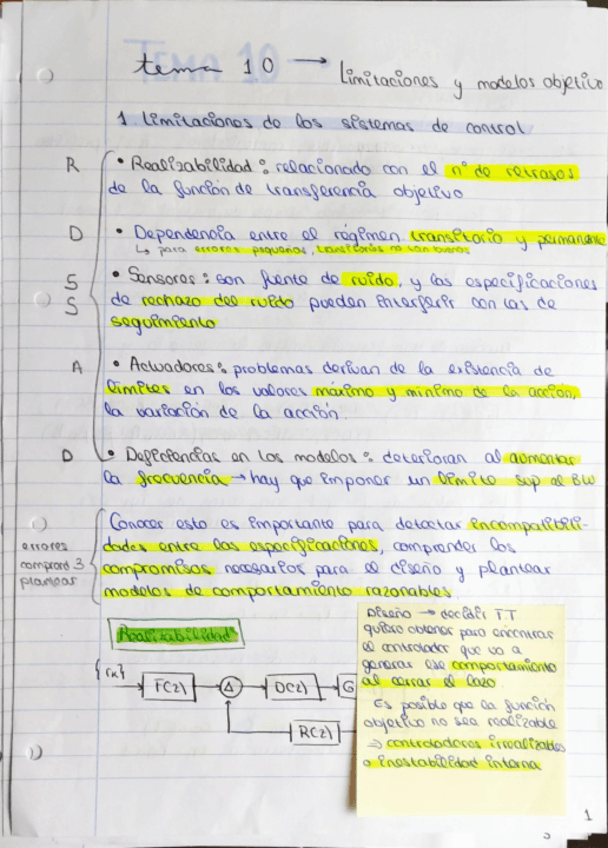 tema 10 → Limitaciones y modelos objetivo
1. Limitaciones de los sistemas de control
R • Realizabilidad: relacionado con el nº de retrasos
de la función de transferencia objetivo
D • Dependencia entre el régimen transitorio y permanente
↳ para errores pequeños, transitorios no tan buenos
S • Sensores: son fuente de ruido, y las especificaciones
S de rechazo del ruido pueden interferir con las de
seguimiento
A • Actuadores: problemas derivan de la existencia de
límites en los valores máximo y mínimo de la acción,
la variación de la acción.
D • Deficiencias en los modelos: deterioran al aumentar
la frecuencia → hay que imponer un límite sup al BW
Conocer esto es importante para detectar incompatibili-
errores dades entre las especificaciones, comprender los
comprend 3 compromisos necesarios para el diseño y plantear
plantear modelos de comportamiento razonables.
Realizabilidad
{rk} F(z) Δ D(z) G
R(z)
Diseño → decidir F.T
quiero obtener para encontrar
el controlador que va a
generar ese comportamiento
al cerrar el lazo.
Es posible que la función
objetivo no sea realizable
⇒ controladores irrealizables
o inestabilidad interna
1